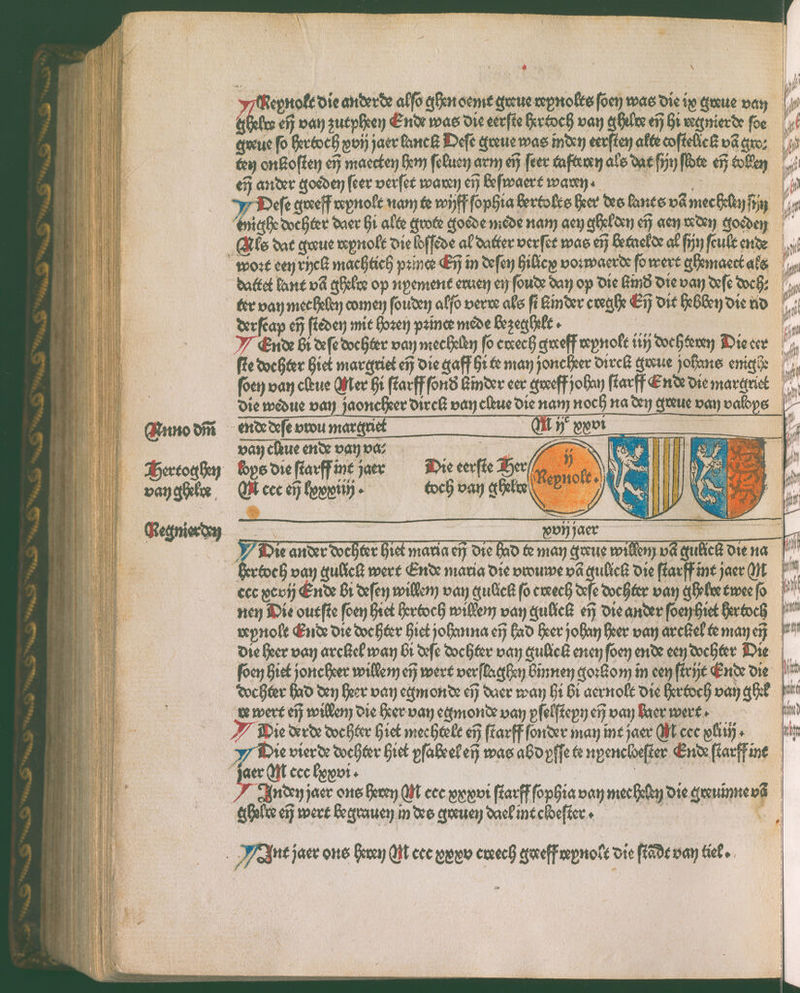 Reynolt die anderde also ghenoemt greue reynolts soen was die ix greue van
ghelre eñ van zutpheen Ende was die eerste hertoch van ghelre eñ hi regnierde soe
greue so hertoch xvij jaer lanck Dese greue was inden eersten alte costelick vā gro⸗
ten onkosten eñ maecten hem seluen arm eñ seer tasteren als dat sijn slote eñ tollen
eñ ander goeden seer verset waren eñ beswaert waren.
Dese greeff reynolt nam te wijff sophia bertolts heer des lants vā mechelen sijn
enighe dochter daer hi alte grote goede mede nam aen ghelden eñ aen reden goeden
Als dat greue reynolt die lossēde al datter verset was eñ betaelde al sijn scult ende
wort een ryck machtich prince Eñ in desen hilicx vorwaerde so wert ghemaect als
dattet lant vā ghelre op nyement eruen en soude dan op die kind die van dese doch⸗
ter van mechelen comen souden also verre als si kinder creghe Eñ dit hebben die rid
derscap eñ steden mit horen prince mede bezeghelt.
Ende bi dese dochter van mechelen so creech greeff reynolt iiij dochteren Die eer
ste dochter hiet margriet eñ die gaff hi te man joncheer dirck greue johans enighe
soen van cleue Mer hi starff sond kinder eer greeff johan starff Ende die margriet
die wedue van jaoncheer dirck van cleue die nam noch na den greue van valoys
Anno dm̄
ende dese vrou margriet
M ijᶜ xxvi
van cleue ende van va⸗
Hertoghen
loys die starff int jaer
Die eerste Her
ij
Reynolt.
van ghelre
M ccc eñ lxxxiiij.
toch van ghelre
Regnierden
xvij jaer
Die ander dochter hiet maria eñ die had te man greue willem vā gulick die na
hertoch van gulick wert Ende maria die vrouwe vā gulick die starff int jaer M
ccc xcvij Ende bi desen willem van gulick so creech dese dochter van ghelre twee so
nen Die outste soen hiet hertoch willem van gulick eñ die ander soen hiet hertoch
reynolt Ende die dochter hiet johanna eñ had heer johan heer van arckel te man eñ
die heer van arckel wan bi dese dochter van gulick enen soen ende een dochter Die
soen hiet joncheer willem eñ wert verslaghen binnen gorkom in een strijt Ende die
dochter had den heer van egmonde eñ daer wan hi bi aernolt die hertoch van ghel
re wert eñ willem die heer van egmonde van yselsteyn eñ van baer wert.
Die derde dochter hiet mechtelt eñ starff sonder man int jaer M ccc xliij.
Die vierde dochter hiet ysabeel eñ was abdysse te nyencloester Ende starff int
jaer M ccc lxxvi.
Inden jaer ons heren M ccc xxxvi starff sophia van mechelen die greuinne vā
ghelre eñ wert begrauen in des greuen dael int cloester.
Int jaer ons heren M ccc xxxv creech greeff reynolt die stadt van tiel.